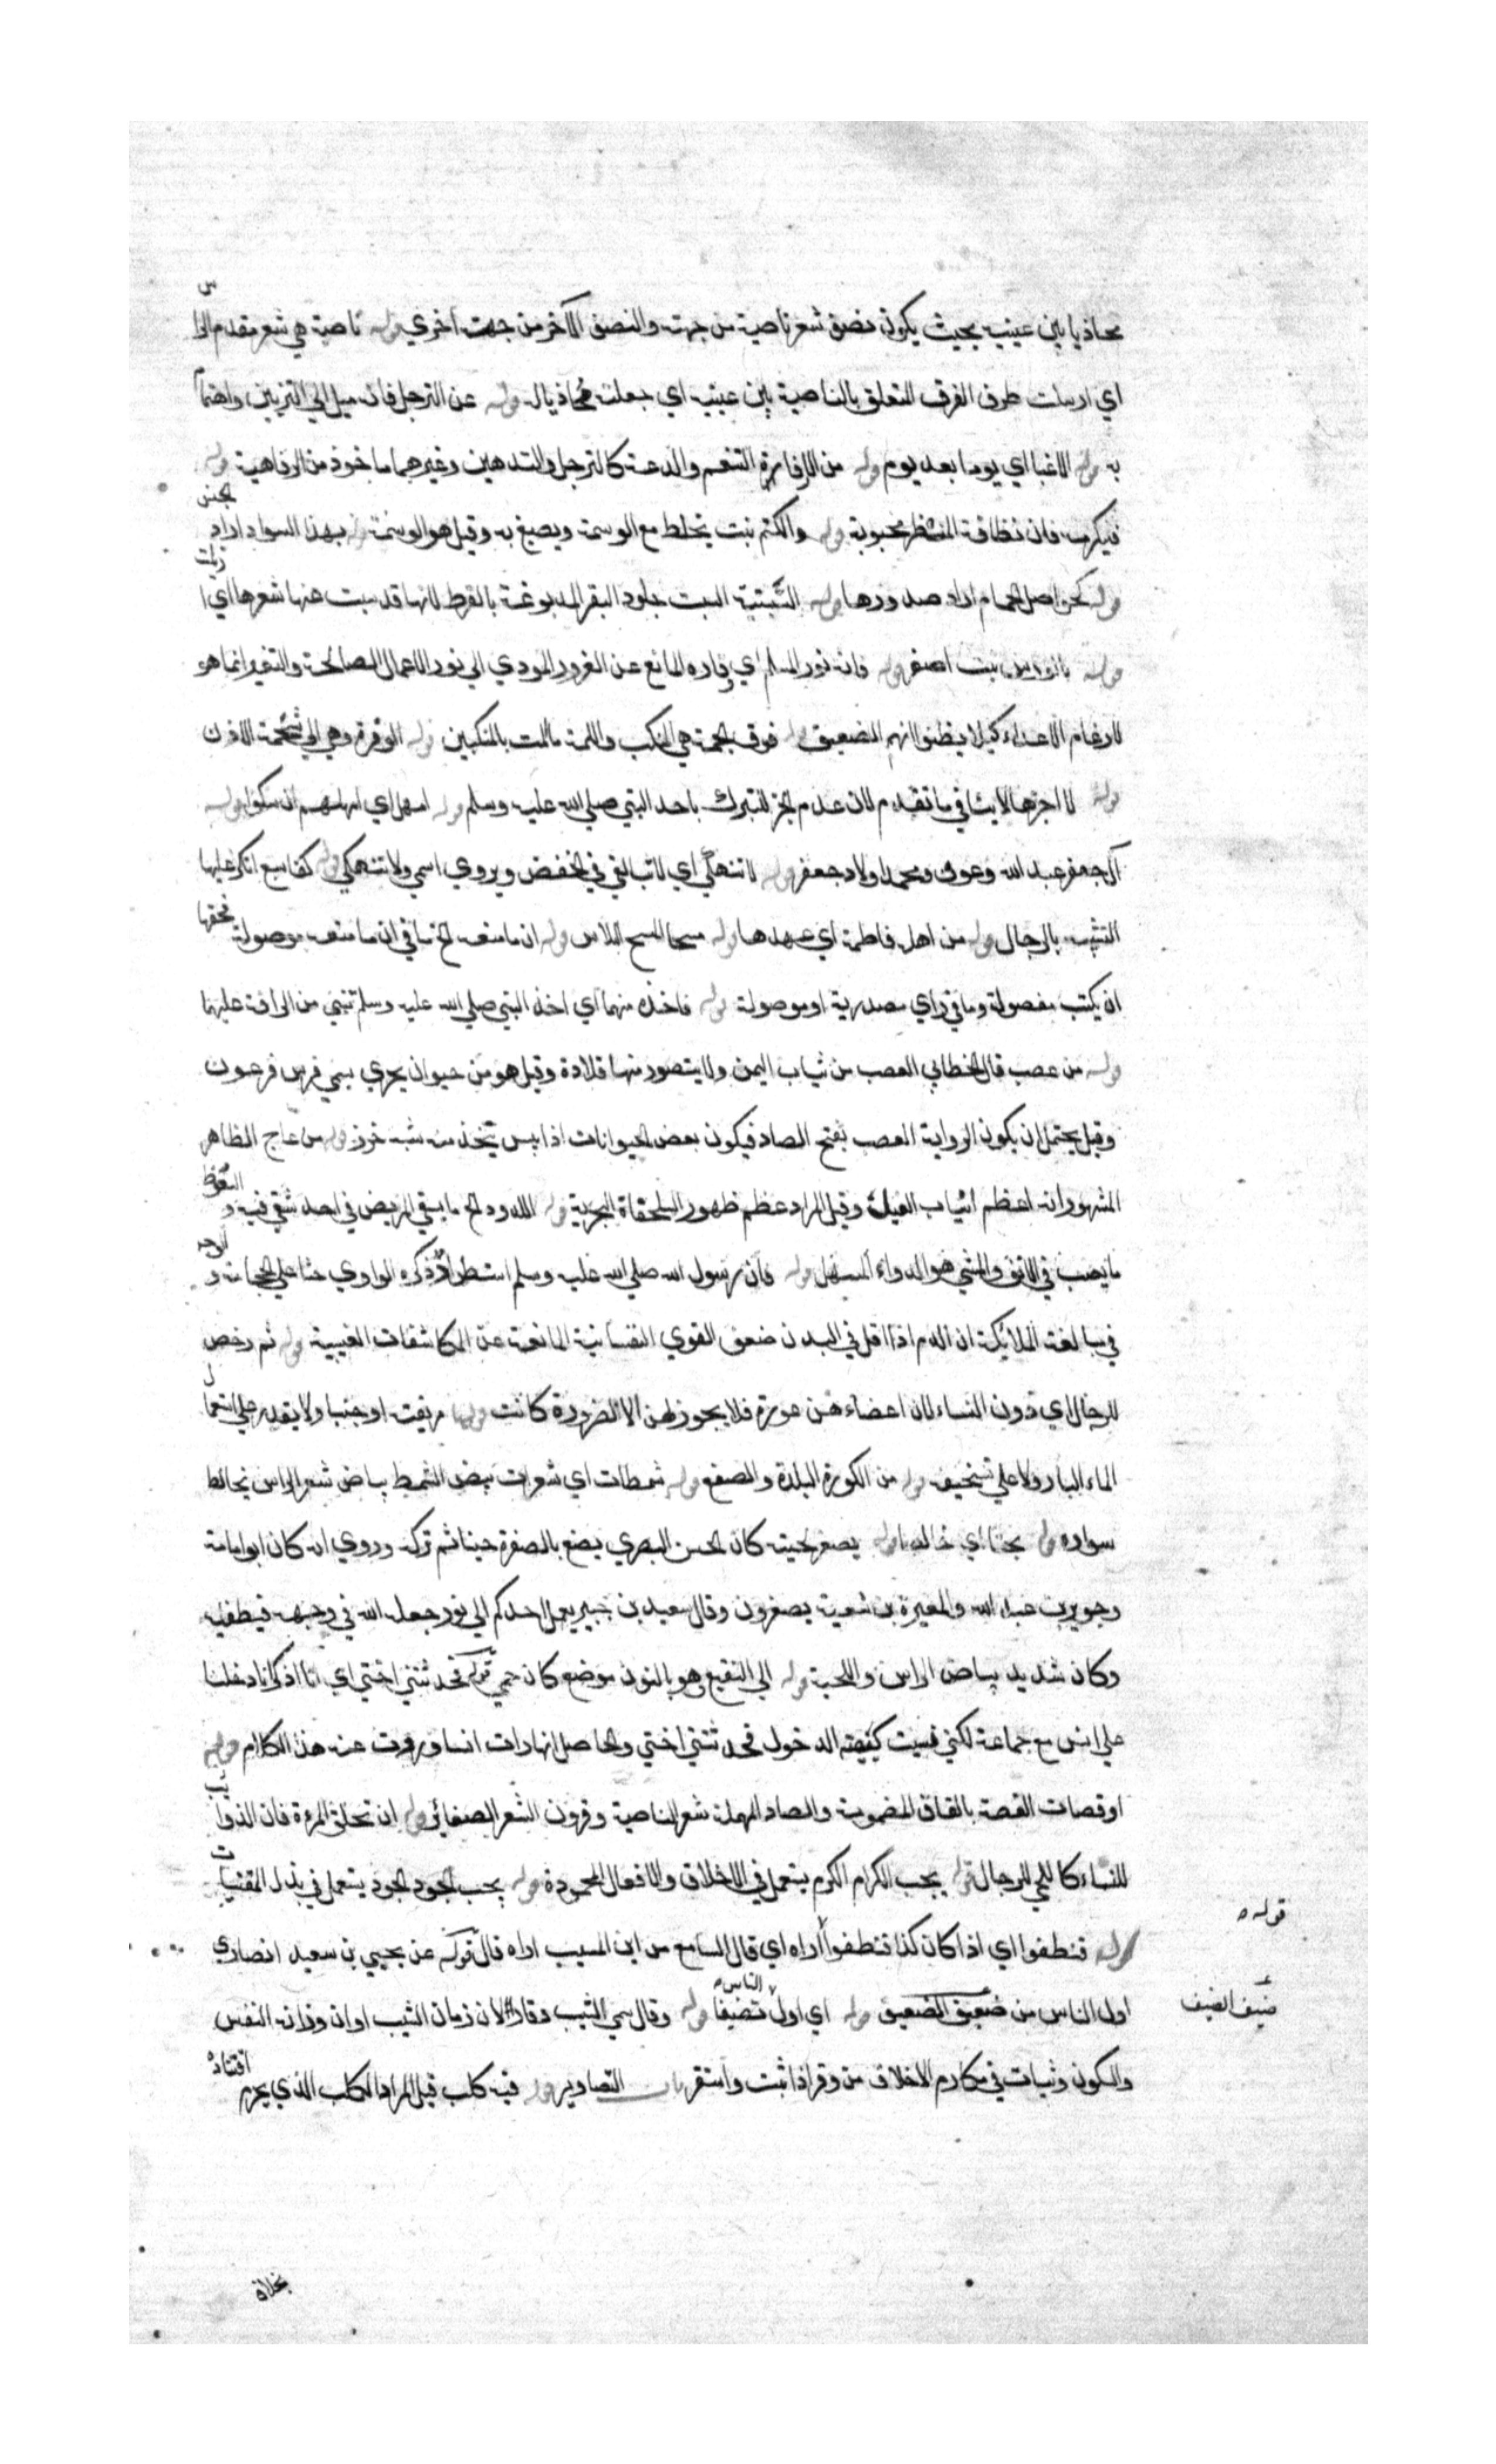 محاذيا بين عينيه بحيث يكون نصف شعر ناصية من جهت والنصف الآخر من جهت اخري قوله ناصية هي شعر مقدم الراس
اي ارسلت طرف الفرق المتعلق بالناصية بين عينيه اي جعلته محاذيا له قوله عن الترجل فانه ميل الي التزيين واهتماما
به قوله الاغبا اي يوما بعد يوم قوله من الارفاه التنعم والدعة كالترجل والتدهين وغيرهما ماخوذ من الرفاهية قوله
فليكرمه فان نظافة المنظر محبوبة قوله والكتم نبت يخلط مع الوسمة ويصبغ به وقيل هو الوسمة قوله بهذا السواد اراد الجنس
قوله كحواصل الحمام اراد صدورها قوله السبتية السبت جلود البقر المدبوغة بالقرظ لانها قد سبت عنها شعرها اي ازيلت
قوله بالورس نبت اصفر قوله فانه نور المسلم اي وقاره المانع عن الغرور المودي الي نور الاعمال الصالحة والتغير انما هو
لارغام الاعداء كيلا يظنوا انهم الضعيف قوله فوق الجمة هي المنكب واللمة ما المت بالمنكبين قوله الوفرة وهي الي شحمة الاذن
قوله لا اجزها لا ينافي ما تقدم لان عدم الجز للتبرك باخذ النبي صلي الله عليه وسلم قوله امهل اي امهلهم ان يبكوا قوله
آل جعفر عبد الله وعون ومحمد اولاد جعفر قوله لا تنهكي اي لا تبالغي في الخفض ويروي اسمي ولا تنهكي قوله كفا سبع انكر عليها
التشبه بالرجال قوله من اهله فاطمة اي عهدها قوله مسحا المسح البلاس قوله ان ما منعه الخ ما في ان ما منعه موصولة فحقها
ان يكتب مفصولة وما في راي مصدرية او موصولة قوله فاخذه منهما اي اخذ النبي صلي الله عليه وسلم تنبئ من الرافة عليهما
قوله من عصب قال الخطابي العصب من ثياب اليمن ولا يتصور منها قلادة وقيل هو من حيوان بحري يسمي فرس فرعون
وقيل يحتمل ان يكون الرواية العصب بفتح الصاد فيكون بعض الحيوانات اذا يبس يتخذ منه شبه خرز قوله من عاج الظاهر
المشهور انه اعظم انياب الفيل وقيل المراد عظم ظهور السلحفاة البحرية قوله اللدود الخ ما يسقي المريض في احد شقي فيه والسعوط
ما يصب في الانف والمشي هو الدواء المسهل قوله فان رسول الله صلي الله عليه وسلم استطراد ذكره الراوي حثا علي الحجامة والوجه
في مبالغة الملائكة ان الدم اذا قل في البدن ضعف القوي النفسانية المانعة عن المكاشفات الغيبية قوله ثم رخص
للرجال اي دون النساء لان اعضاء هن عورة فلا يجوز لهن الا لضرورة كانت مريضة او جنبا ولا يقدر علي استعمال
الماء البارد ولا علي تسخينه قوله من الكورة البلدة والصقع قوله شمطات اي شعرات بيض الشمط بياض شعر الراس يخالط
سواده قوله بحتا اي خالصا قوله يصفر لحيته كان الحسن البصري يصبغ بالصفرة حينا ثم تركه وروي انه كان ابو امامة
وجرير بن عبد الله والمغيرة بن شعبة يصفرون وقال سعيد بن جبير يعمل احدكم الي نور جعله الله في وجهه فيطفيه
وكان شديد بياض الراس واللحية قوله الي النقيع وهو بالنون موضع كان حمي قوله فحدثتني اختي اي انا اذكر انا دخلنا
علي انس مع جماعة لكني نسيت كيفية الدخول فحدثتني اختي والحاصل انها رات انسا وروت عنه هذا الكلام قوله
او قصات القصة بالقاف المضمومة والصاد المهملة شعر الناصية وقرون الشعر الضفائر قوله ان تحلق المرءة فان الذوائب
للنساء كاللحي للرجال قوله يحب الكرام الكرم يستعمل في الاخلاق والافعال المحمودة قوله يحب الجود الجود يستعمل في بذل المقتنيات
قوله
قوله فنظفوا اي اذا كان كذا فنظفوا اراه اي قال السامع من ابن المسيب اراه قال قوله عن يحيي بن سعيد انصاري
اول الناس من ضعيف الضعيف قوله اي اول الناس تضيفا قوله وقال سمي الشيب وقارا لان زمان الشيب اوان وزانة النفس
ضيف الضيف
والسكون وثبات في مكارم الاخلاق من وقر اذا ثبت واستقر باب التصاوير قوله فيه كلب قيل المراد الكلب الذي يحرم اقتناؤه
بخلاف